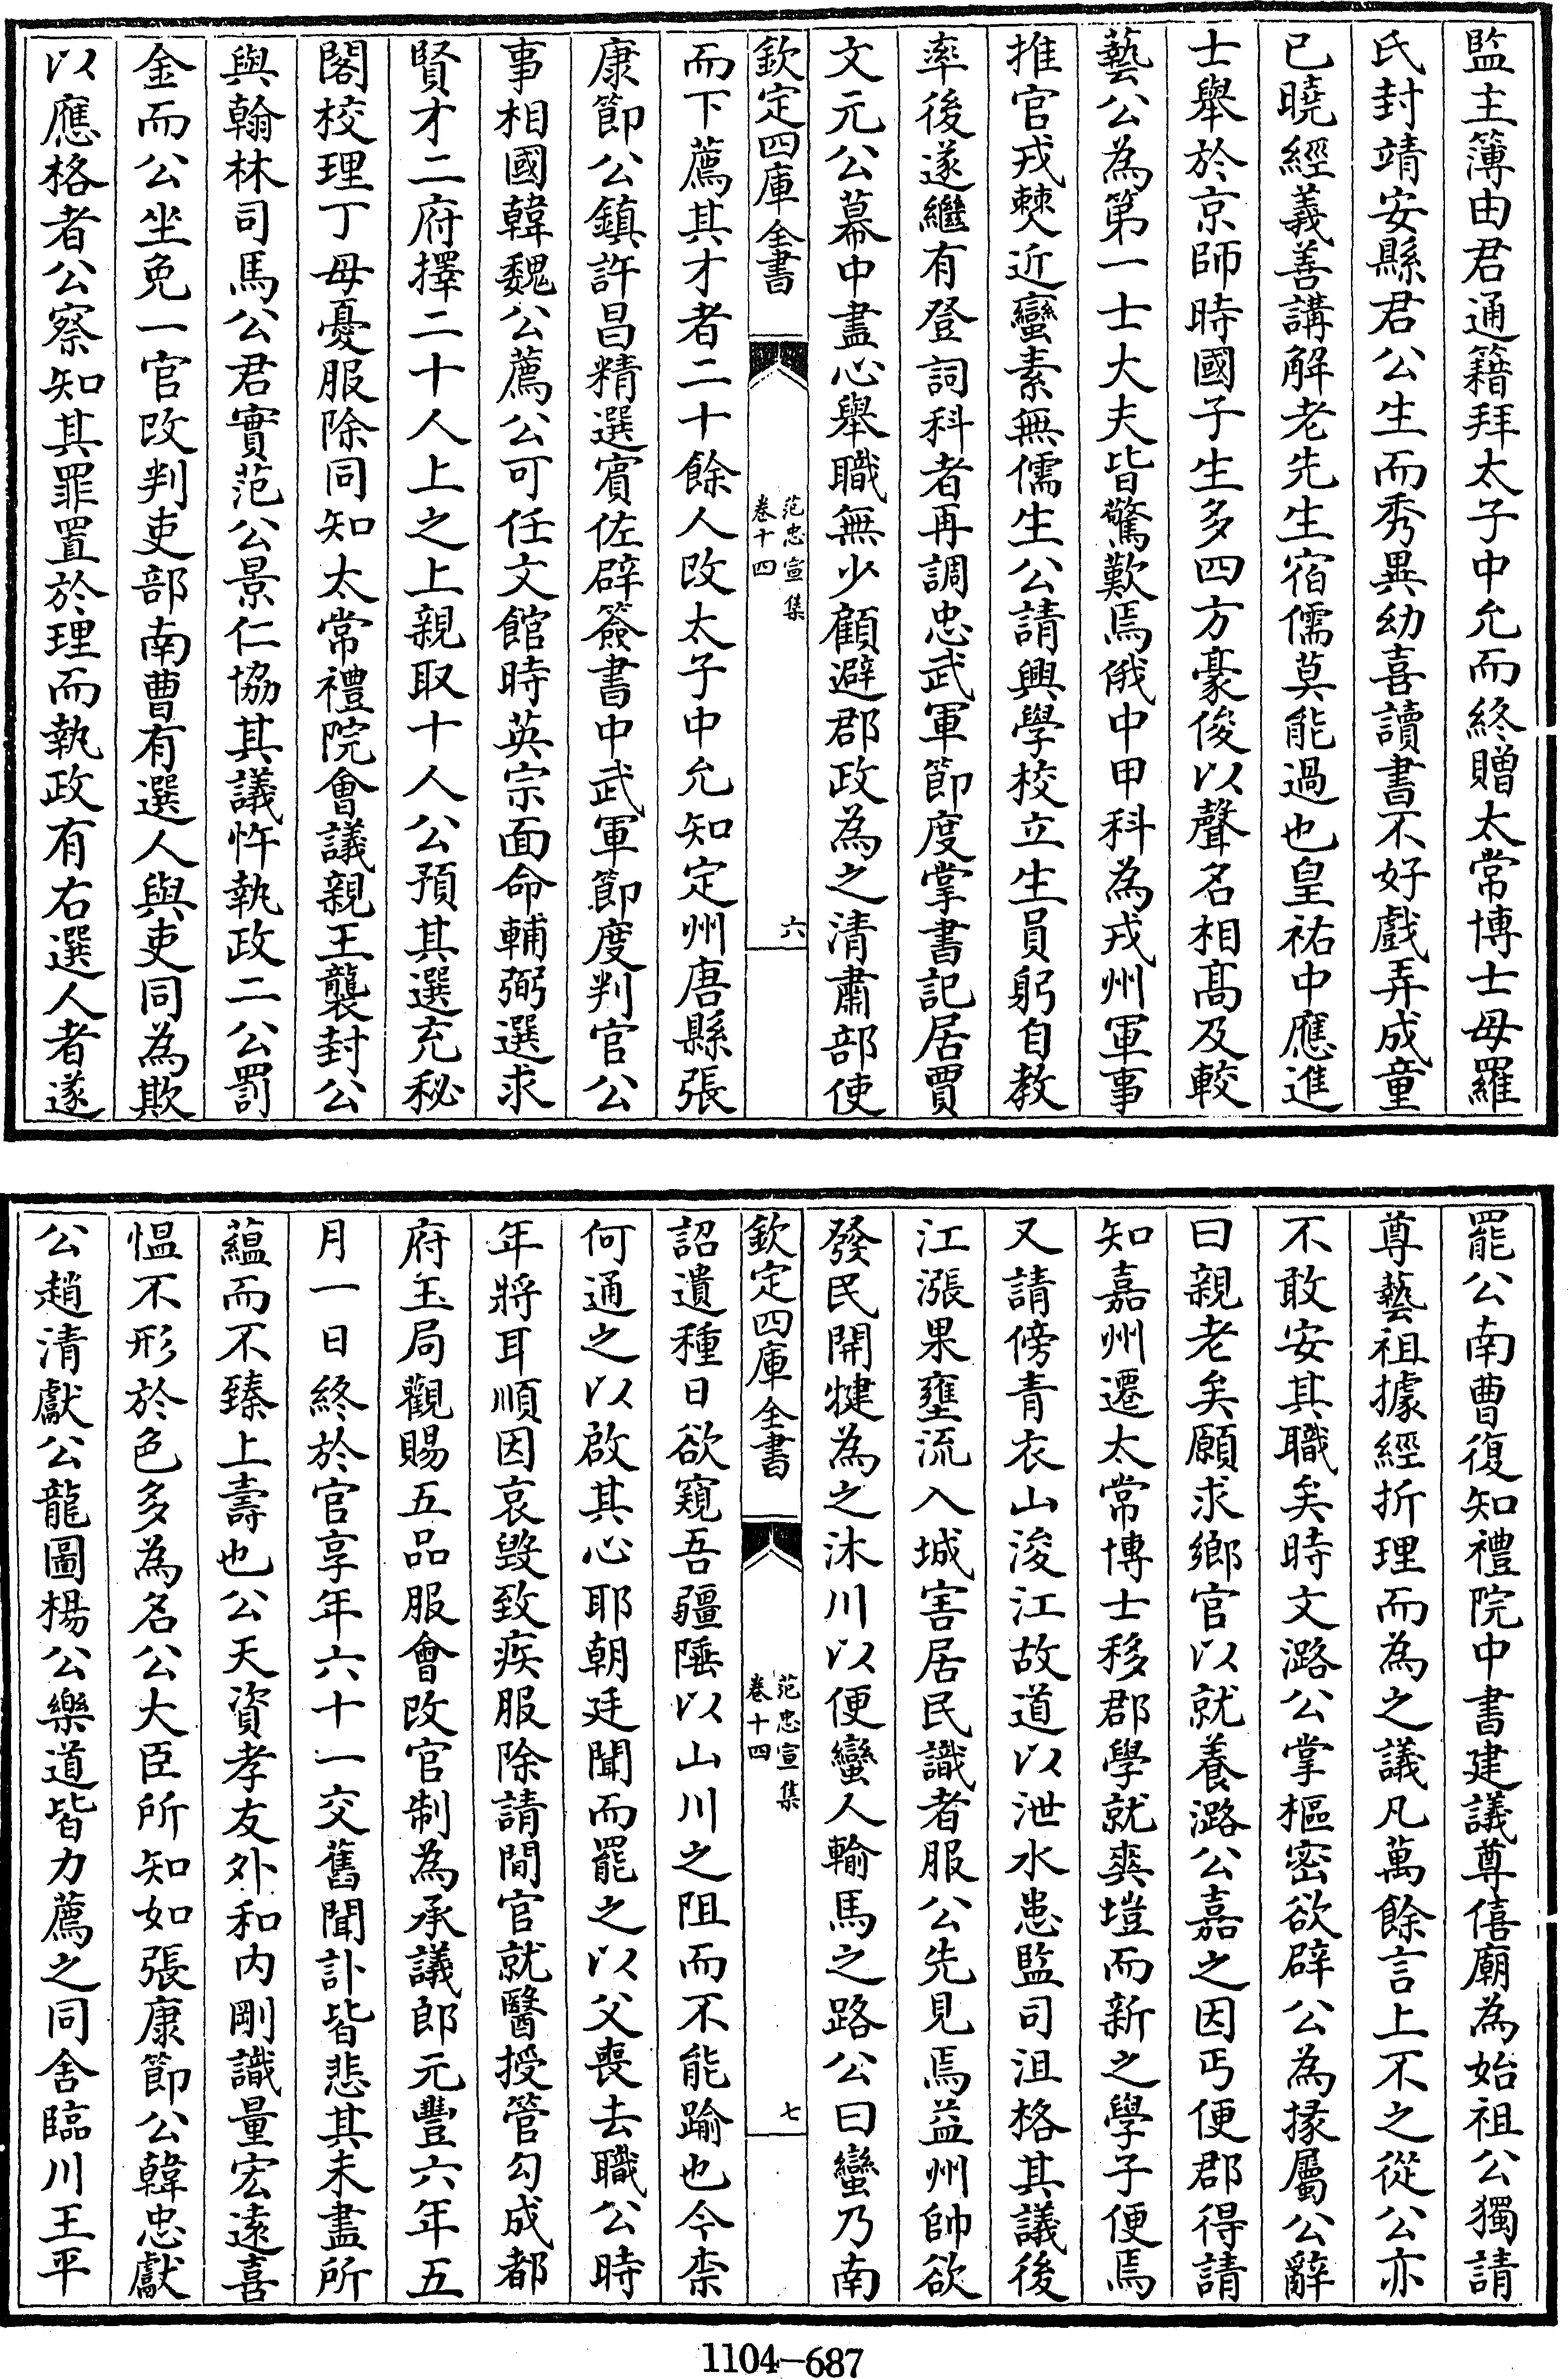 監主簿由君通籍拜太子中允而終贈太常博士母羅
氏封靖安縣君公生而秀異幼喜讀書不好戲弄成童
已曉經義善講解老先生宿儒莫能過也皇祐中應進
士舉於京師時國子生多四方豪俊以聲名相髙及較
藝公為第一士大夫皆驚歎焉俄中甲科為戎州軍事
推官戎僰近蠻素無儒生公請興學校立生員躬自教
率後遂繼有登詞科者再調忠武軍節度掌書記居賈
文元公幕中盡心舉職無少顧避郡政為之清肅部使
欽定四庫全書
范忠宣集
卷十四
六
而下薦其才者二十餘人改太子中允知定州唐縣張
康節公鎮許昌精選賓佐辟簽書中武軍節度判官公
事相國韓魏公薦公可任文館時英宗面命輔弼選求
賢才二府擇二十人上之上親取十人公預其選充秘
閣校理丁母憂服除同知太常禮院會議親王襲封公
與翰林司馬公君實范公景仁協其議忤執政二公罰
金而公坐免一官改判吏部南曹有選人與吏同為欺
以應格者公察知其罪置於理而執政有右選人者遂
罷公南曹復知禮院中書建議尊僖廟為始祖公獨請
尊藝祖據經折理而為之議凡萬餘言上不之從公亦
不敢安其職矣時文潞公掌樞密欲辟公為掾屬公辭
曰親老矣願求鄉官以就養潞公嘉之因丐便郡得請
知嘉州遷太常博士移郡學就爽塏而新之學子便焉
又請傍青衣山浚江故道以泄水患監司沮格其議後
江漲果壅流入城害居民識者服公先見焉益州帥欲
發民開犍為之沐川以便蠻人輸馬之路公曰蠻乃南
欽定四庫全書
范忠宣集
卷十四
七
詔遺種日欲窺吾疆陲以山川之阻而不能踰也今柰
何通之以啟其心耶朝廷聞而罷之以父喪去職公時
年將耳順因哀毀致疾服除請閒官就醫授管勾成都
府玉局觀賜五品服會改官制為承議郎元豐六年五
月一日終於官享年六十一交舊聞訃皆悲其未盡所
蘊而不臻上壽也公天資孝友外和内剛識量宏遠喜
愠不形於色多為名公大臣所知如張康節公韓忠獻
公趙清獻公龍圖楊公樂道皆力薦之同舍臨川王平
1104-687